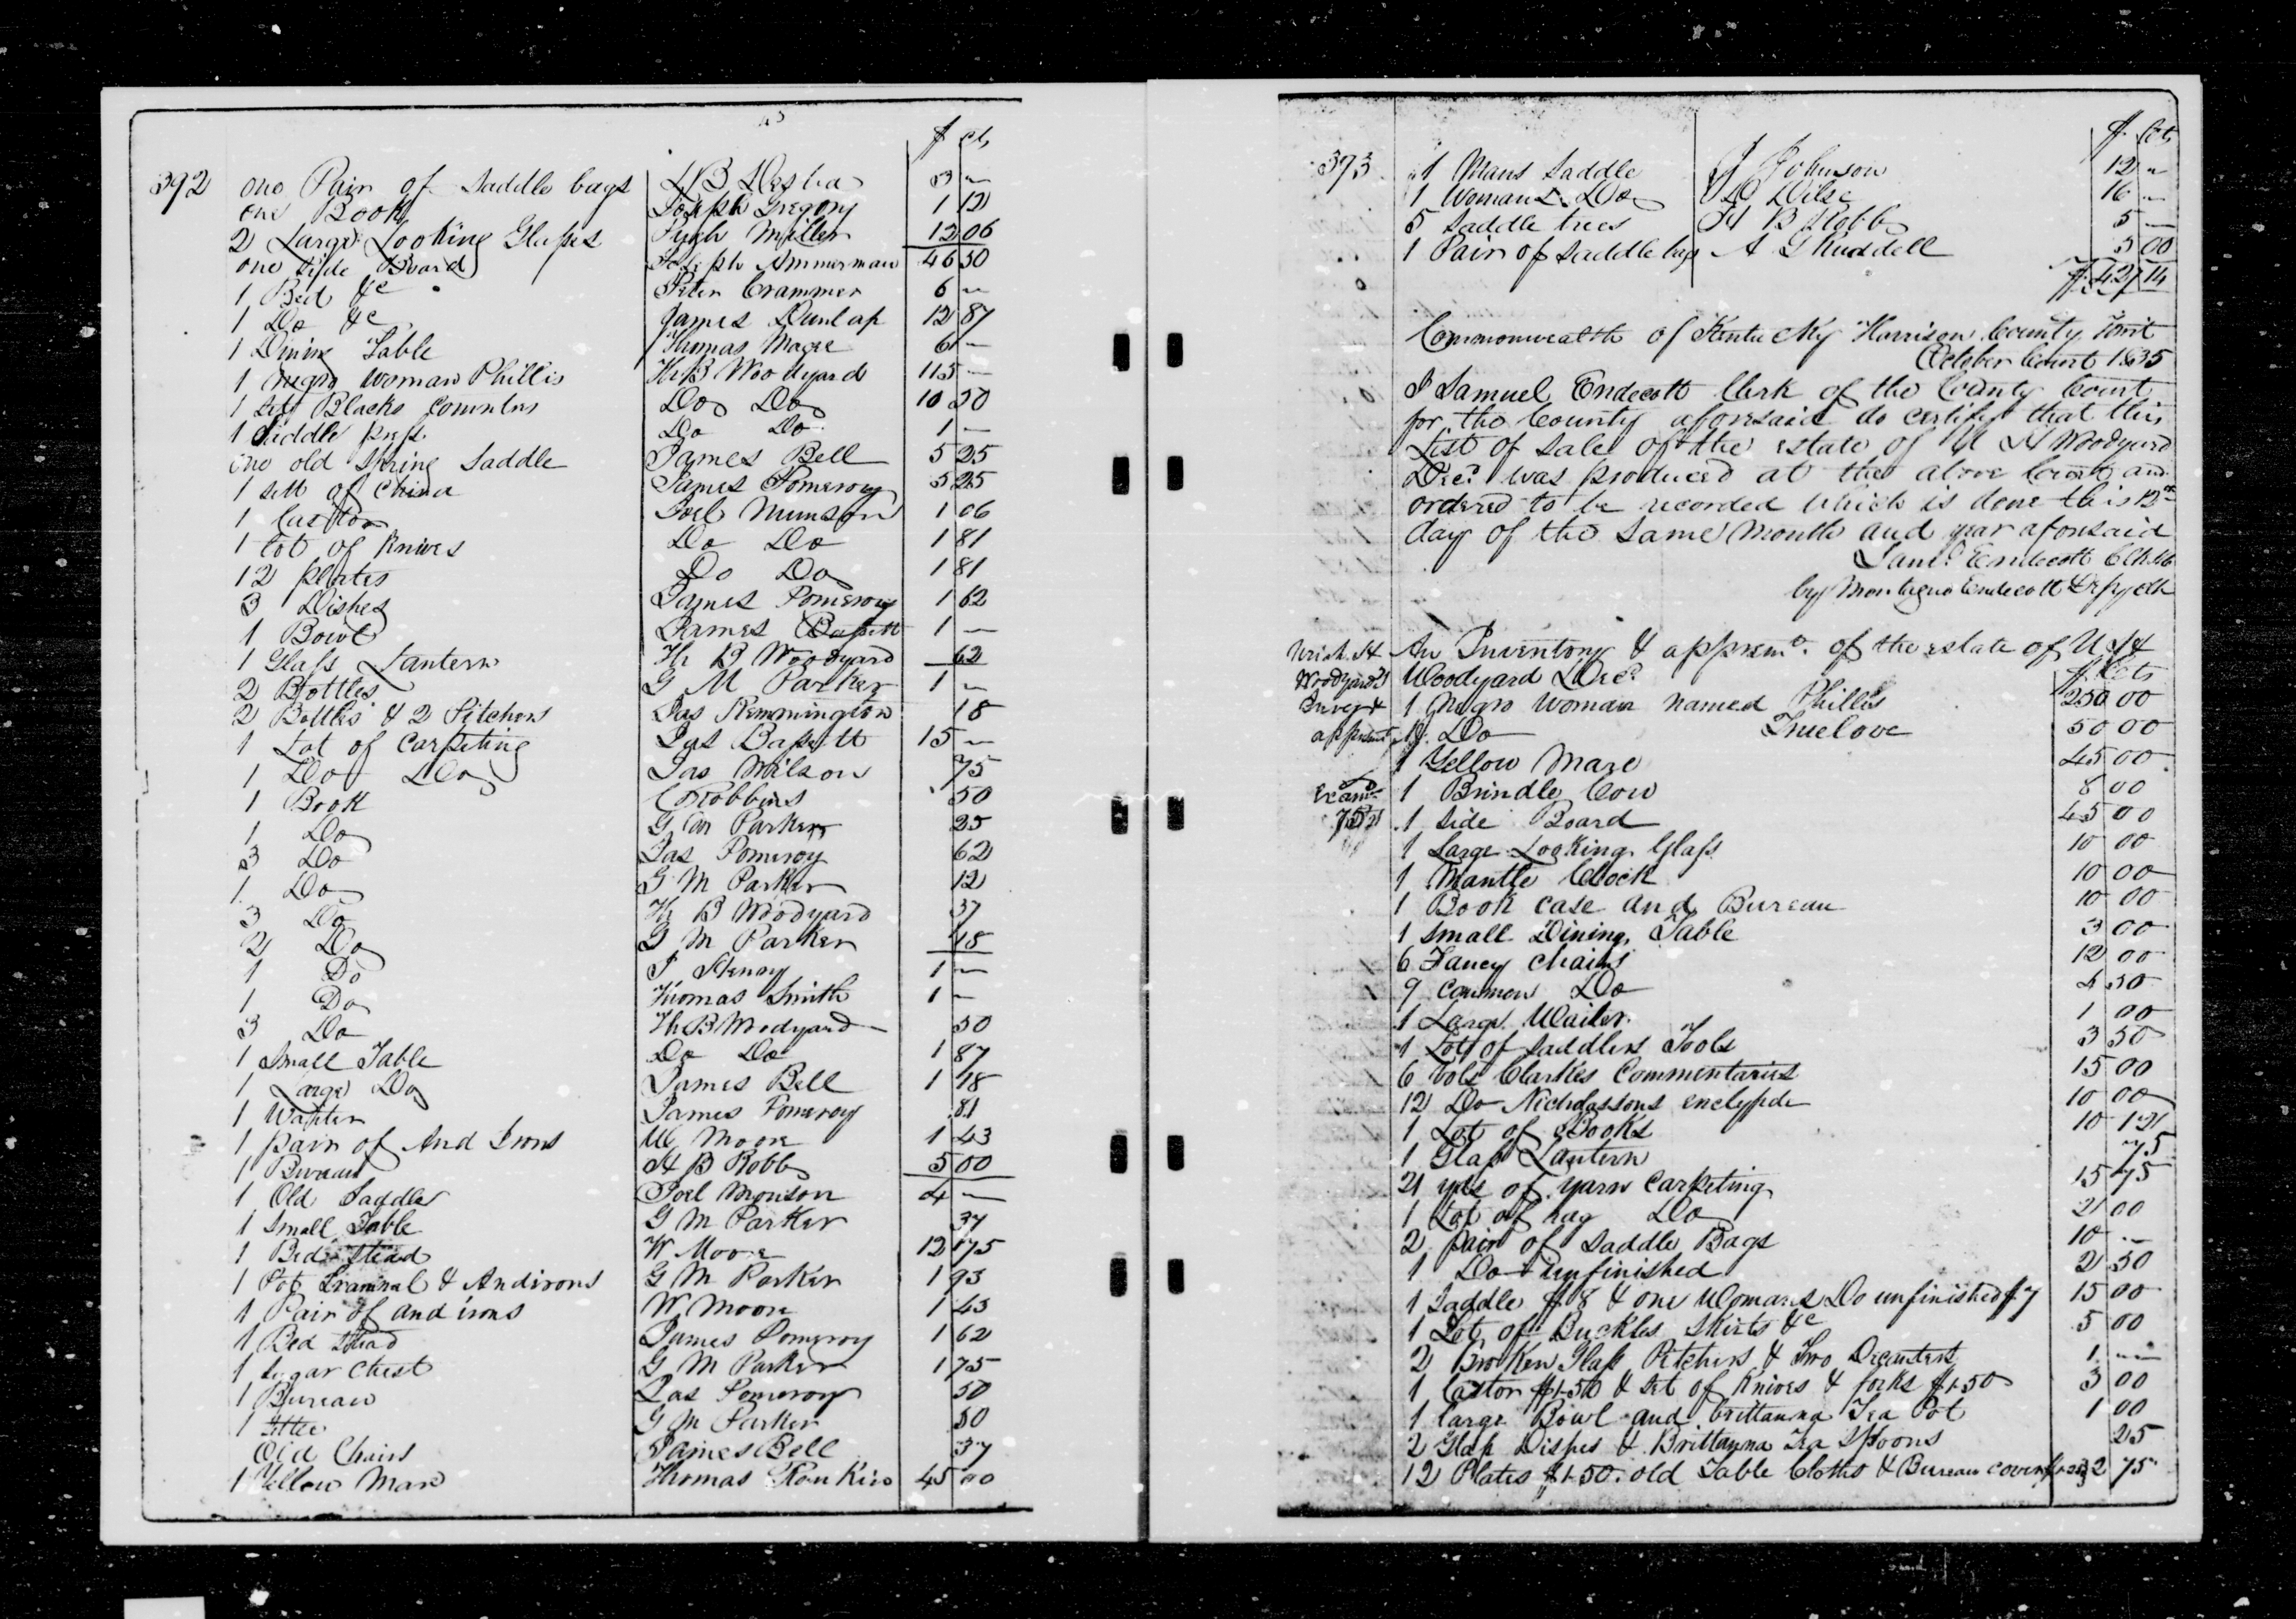 $ cts
392 one Pair of Saddle bags L B Desha 3 —
one Book Joseph Gregory 1 12
2 Large Looking Glases Pugh Miller 12 06
one Side Board Joseph Ammerman 46 50
1 Bed &c Peter Crammer 6 —
1 Do &c James Dunlap 12 87
1 Dining Table Thomas Magee 6 —
1 negro woman Phillis H B Woodyard 115 —
1 Set Blacks Comenters Do Do 10 50
1 Saddle press Do Do 1 —
one old Spring Saddle James Bell 5 25
1 Sett of China James Pomeroy 5 25
1 Castor Joel Munson 1 06
1 Lot of Knives Do Do 1 81
12 plates Do Do 1 81
3 Dishes James Pomeroy 1 62
1 Bowl James Bassett 1 —
1 Glass Lantern H B Woodyard 62
2 Bottles G M Parker 1 —
2 Bottles & 2 Pitchers Jas Remmington 18
1 Lot of Carpeting Jas Bassett 15 —
1 Do Do Jas Wilson 75
1 Book C Robbins 50
1 Do G M Parker 25
3 Do Jas Pomeroy 62
1 Do G M Parker 12
3 Do H B Woodyard 37
2 Do G M Parker 18
1 Do J Henry 1 —
1 Do Thomas Smith 1 —
3 Do H B Woodyard 50
1 Small Table Do Do 1 87
1 Large Do James Bell 1 18
1 Waiter James Pomeroy 81
1 pair of And Irons W Moore 1 43
1 Bureau H B Robb 5 00
1 Old Saddle Joel Monson 4 —
1 Small Table G M Parker 37
1 Bed Stead W Moore 12 75
1 Pot Trammel & Andirons G M Parker 1 93
1 Pair of and irons W Moore 1 43
1 Bed Stead James Pomeroy 1 62
1 Sugar Chest G M Parker 1 75
1 Bureau Jas Pomeroy 50
1 Settee G M Parker 50
Old Chairs James Bell 37
1 Yellow Mare Thomas Rankin 45 00
$ Cts
373 1 Mans Saddle J Johnson 12 —
1 Womans Do D Wilse 16 —
5 Saddle trees H B Robb 5 —
1 Pair of Saddle bags A Ruddell 5 00
$427 14
Commonwealth of Kentucky Harrison County Towit
October Court 1835
I Samuel Endecott Clerk of the County Court
for the County aforesaid do certify that this
List of Sale of the estate of U H Woodyard
Decd was produced at the above Court and
ordered to be recorded which is done this 12th
day of the Same Month and year aforesaid
Saml Endecott
by Montague Endecott Depy clk
Uriah H An Inventory & apprsmt of the estate of U H
Woodyards Woodyard Decd $ Cts
Invey & 1 Negro Woman named Phillis 250 00
apprsmt 1 Do Truelove 50 00
1 Yellow Mare 45 00
Examd 1 Brindle Cow 8 00
1 Side Board 45 00
1 Large Looking Glass 10 00
1 Mantle Clock 10 00
1 Book case and Bureau 10 00
1 Small Dining Table 3 00
6 Fancy Chairs 12 00
9 Common Do 4 50
1 Large Waiter 1 00
1 Lot of Saddlers Tools 3 50
6 Vols Clarkes Commentaries 15 00
12 Do Nicholassons enclypde 10 00
1 Lot of Books 10 12
1 Glass Lantern 75
21 yds of yarn Carpeting 15 75
1 Lot of rag Do 2 00
2 pair of Saddle Bags 10 —
1 Do unfinished 2 50
1 Saddle $8 & one Womans Do unfinished $7 15 00
1 Lot of Buckles Skirts &c 5 00
2 Broken Glass Pitchers & Two Decanters 1 —
1 Castor $1.50 & Set of Knives & forks $1.50 3 00
1 large Bowl and brittanna Tea Pot 1 00
2 Glass Dishes & Brittanna Tea Spoons 25
12 Plates $1.50 old Table Cloths & Bureau cover 2 75